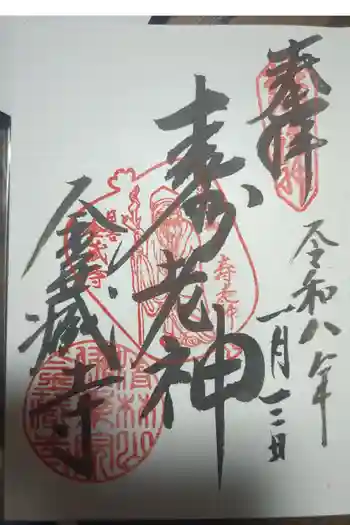 奉拝
令和八年
一月三日
寿老神
金蔵寺
寿老神